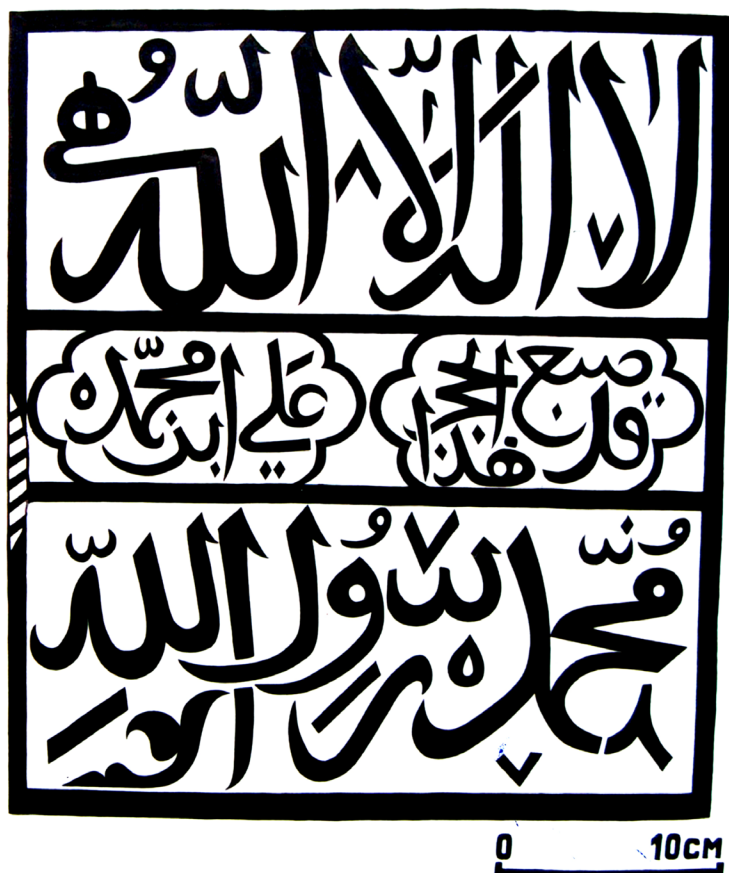 لا اله الا الله
قد صنع هذا الحجر
علي ابن محمد
محمد رسول الله
0 10CM